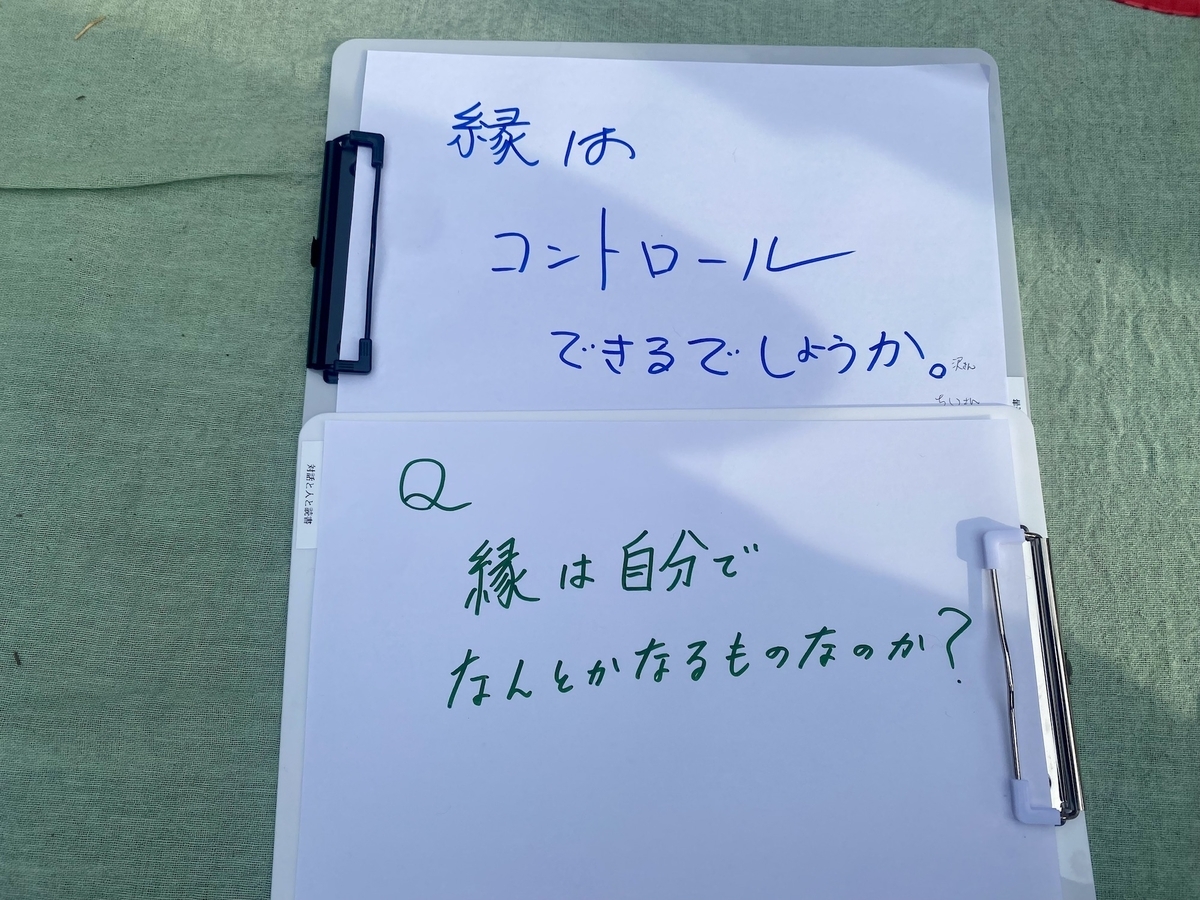 縁は
コントロール
できるでしょうか。
ちいさん
対話と人と読書
Q
縁は自分で
なんとかなるものなのか?